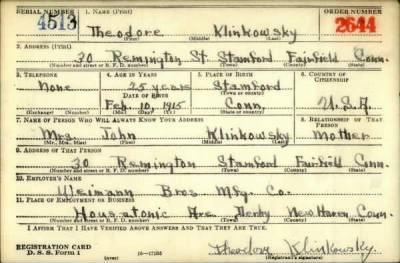 SERIAL NUMBER 1. NAME (Print) ORDER NUMBER
4513 Theodore Klinkowsky 2644
(First) (Middle) (Last)
2. ADDRESS (Print)
30 Remington St. Stamford Fairfield Conn.
(Number and street or R. F. D. number) (Town) (County) (State)
3. TELEPHONE 4. AGE IN YEARS 5. PLACE OF BIRTH 6. COUNTRY OF CITIZENSHIP
None 25 years Stamford
DATE OF BIRTH (Town or county)
Feb. 10, 1915 Conn. U.S.A.
(Exchange) (Number) (Mo.) (Day) (Yr.) (State or country)
7. NAME OF PERSON WHO WILL ALWAYS KNOW YOUR ADDRESS 8. RELATIONSHIP OF THAT PERSON
Mrs. John Klinkowsky Mother
(Mr., Mrs., Miss) (First) (Middle) (Last)
9. ADDRESS OF THAT PERSON
30 Remington Stamford Fairfield Conn.
(Number and street or R. F. D. number) (Town) (County) (State)
10. EMPLOYER'S NAME
Weimann Bros Mfg. Co.
11. PLACE OF EMPLOYMENT OR BUSINESS
Housatonic Ave Derby New Haven Conn.
(Number and street or R. F. D. number) (Town) (County) (State)
I AFFIRM THAT I HAVE VERIFIED ABOVE ANSWERS AND THAT THEY ARE TRUE.
REGISTRATION CARD
D. S. S. Form 1 (over) Theodore Klinkowsky.
(Registrant's signature)